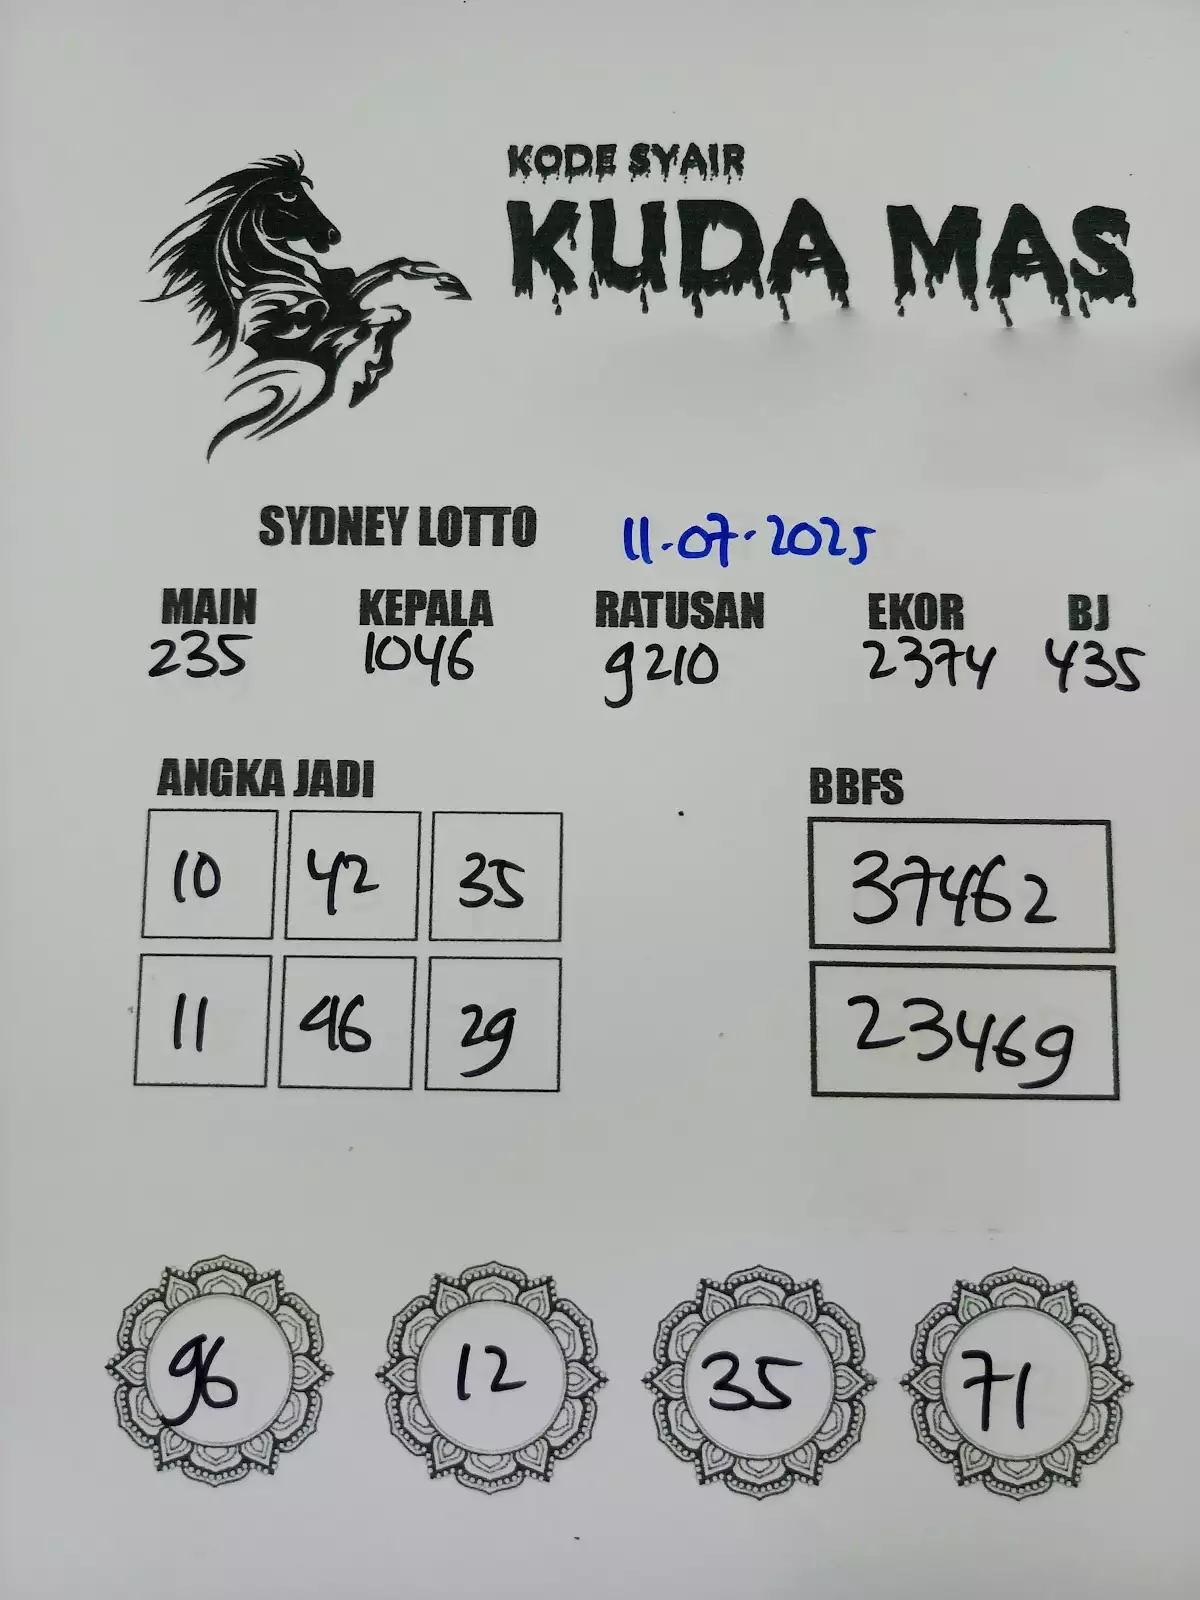 KODE SYAIR
KUDA MAS
SYDNEY LOTTO 11-07-2025
MAIN KEPALA RATUSAN EKOR BJ
235 1046 9210 2374 435
ANGKA JADI BBFS
10 42 35 37462
11 46 29 23469
96 12 35 71